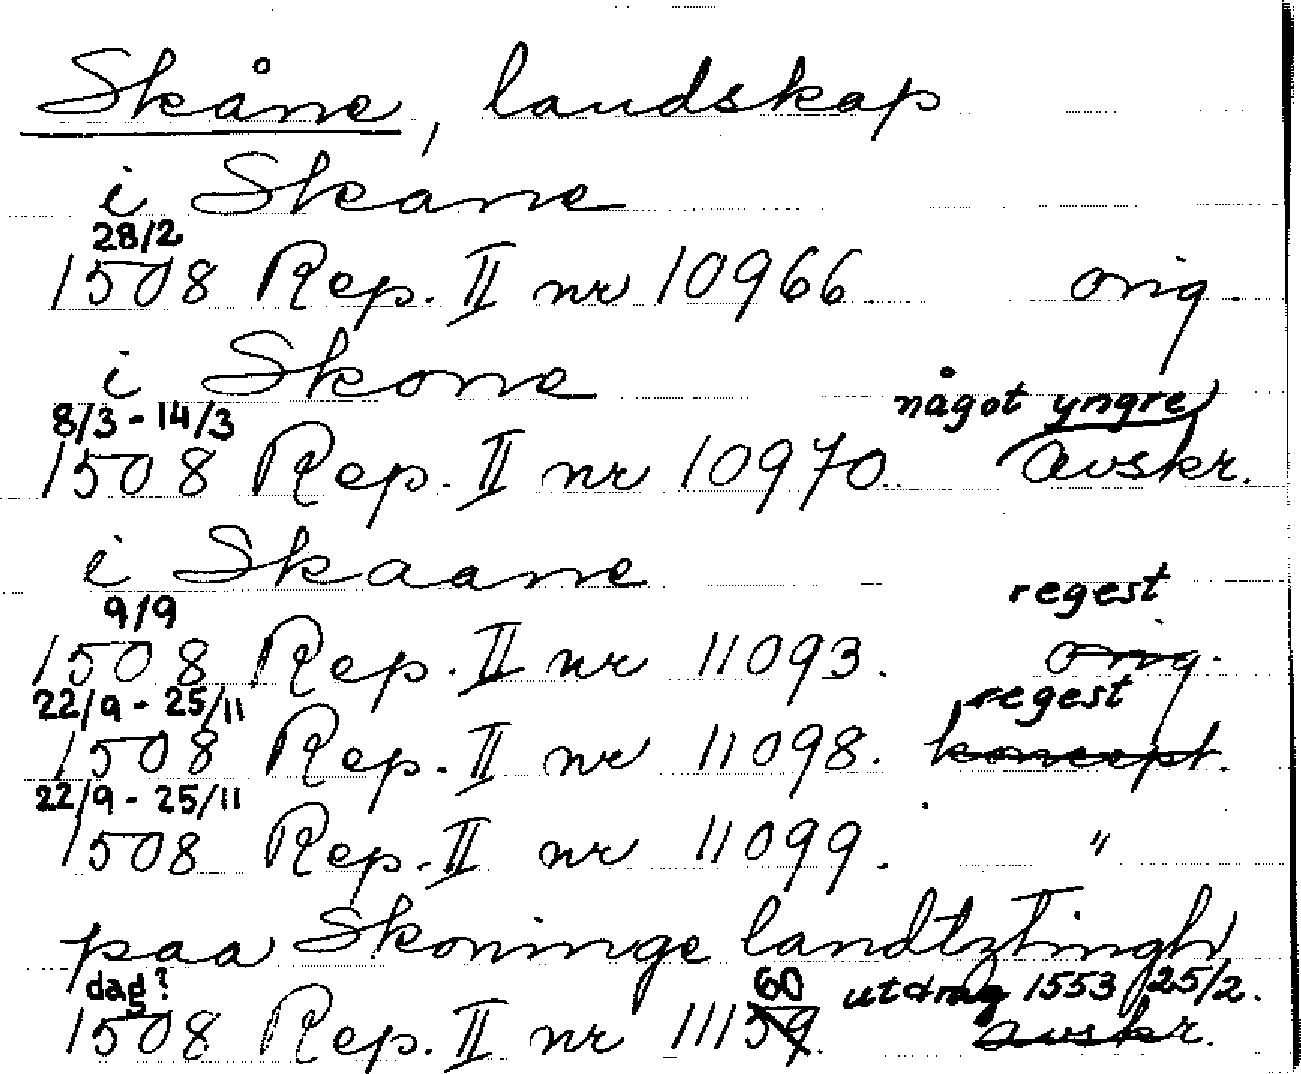 Skåne, landskap
i Skane
28/2
1508 Rep. II nr 10966. orig.
i Skone
8/3 - 14/3 något yngre
1508 Rep. II nr 10970. avskr.
i Skaane
9/9 regest
1508 Rep. II nr 11093. orig.
22/9 - 25/11 regest
1508 Rep. II nr 11098. koncept.
22/9 - 25/11
1508 Rep. II nr 11099. "
paa Skoninge landtztingh
dag? 60 utdrag 1553 25/2.
1508 Rep. II nr 11159. avskr.